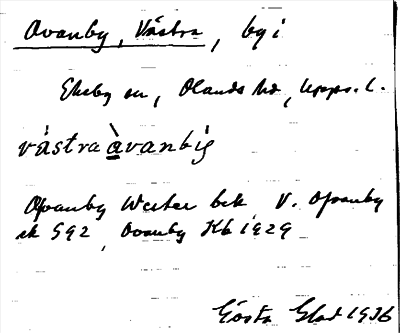 Ovanby, Västra, by i
Ekeby sn, Olands hd, Upps. l.
västra òvanbi̬
Ofvanby Wester bek V. Ofvanby
ek 592, Ovanby Kb 1929
Gösta Glad 1936